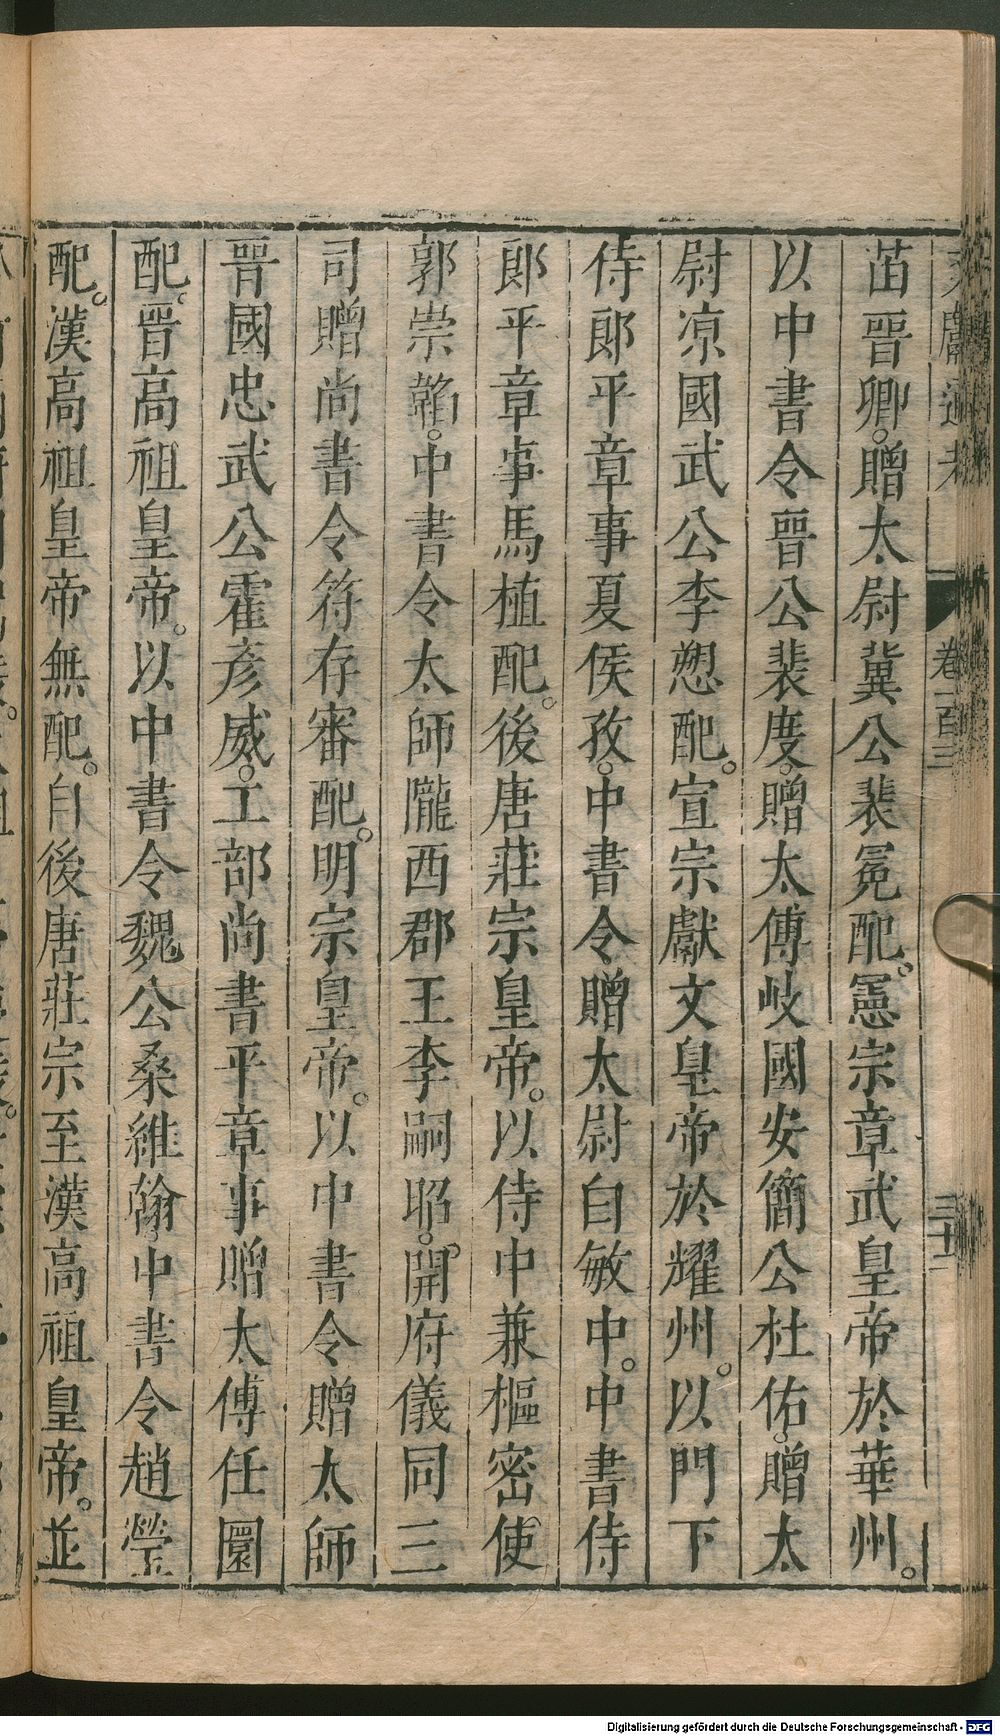 文獻通考 卷一百三 三十一
苗晉卿。贈太尉冀公裴冕配。憲宗章武皇帝於華州。
以中書令晉公裴度。贈太傅岐國安簡公杜佑。贈太
尉凉國武公李愬配。宣宗獻文皇帝於耀州。以門下
侍郎平章事夏侯孜。中書令贈太尉白敏中。中書侍
郎平章事馬植配。後唐莊宗皇帝。以侍中兼樞密使
郭崇韜。中書令太師隴西郡王李嗣昭。開府儀同三
司贈尚書令符存審配。明宗皇帝。以中書令贈太師
晉國忠武公霍彥威。工部尚書平章事贈太傅任圜
配。晉高祖皇帝。以中書令魏公桑維翰。中書令趙瑩
配。漢高祖皇帝無配。自後唐莊宗至漢高祖皇帝。並
Digitalisierung gefördert durch die Deutsche Forschungsgemeinschaft - DFG